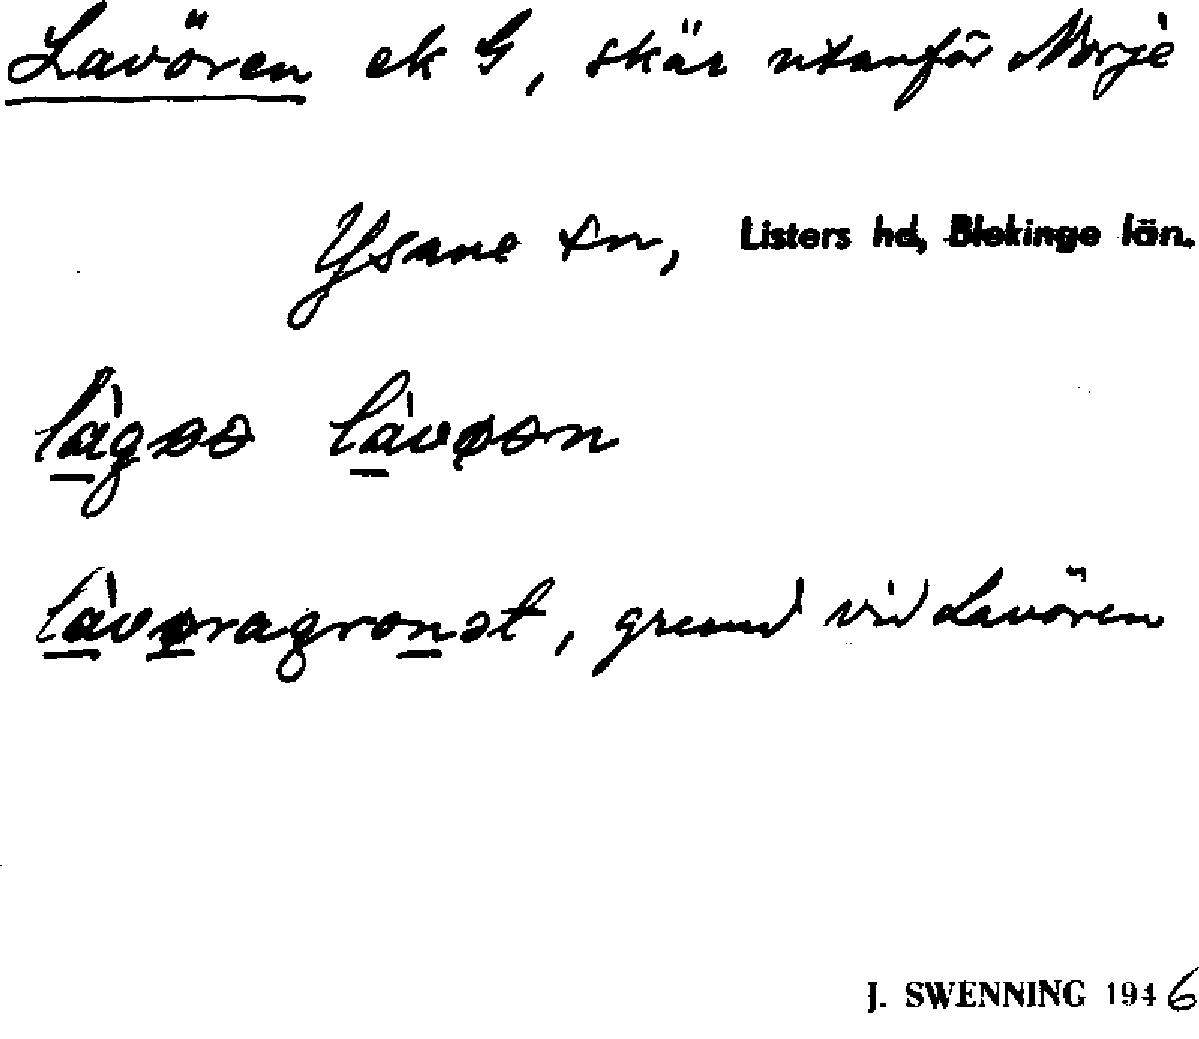 Lavören ek G, skär utanför Norje
Ysane sn, Listers hd, Blekinge län.
lågøə låvøən
låvøragronət, grund vid Lavören
J. SWENNING 1946